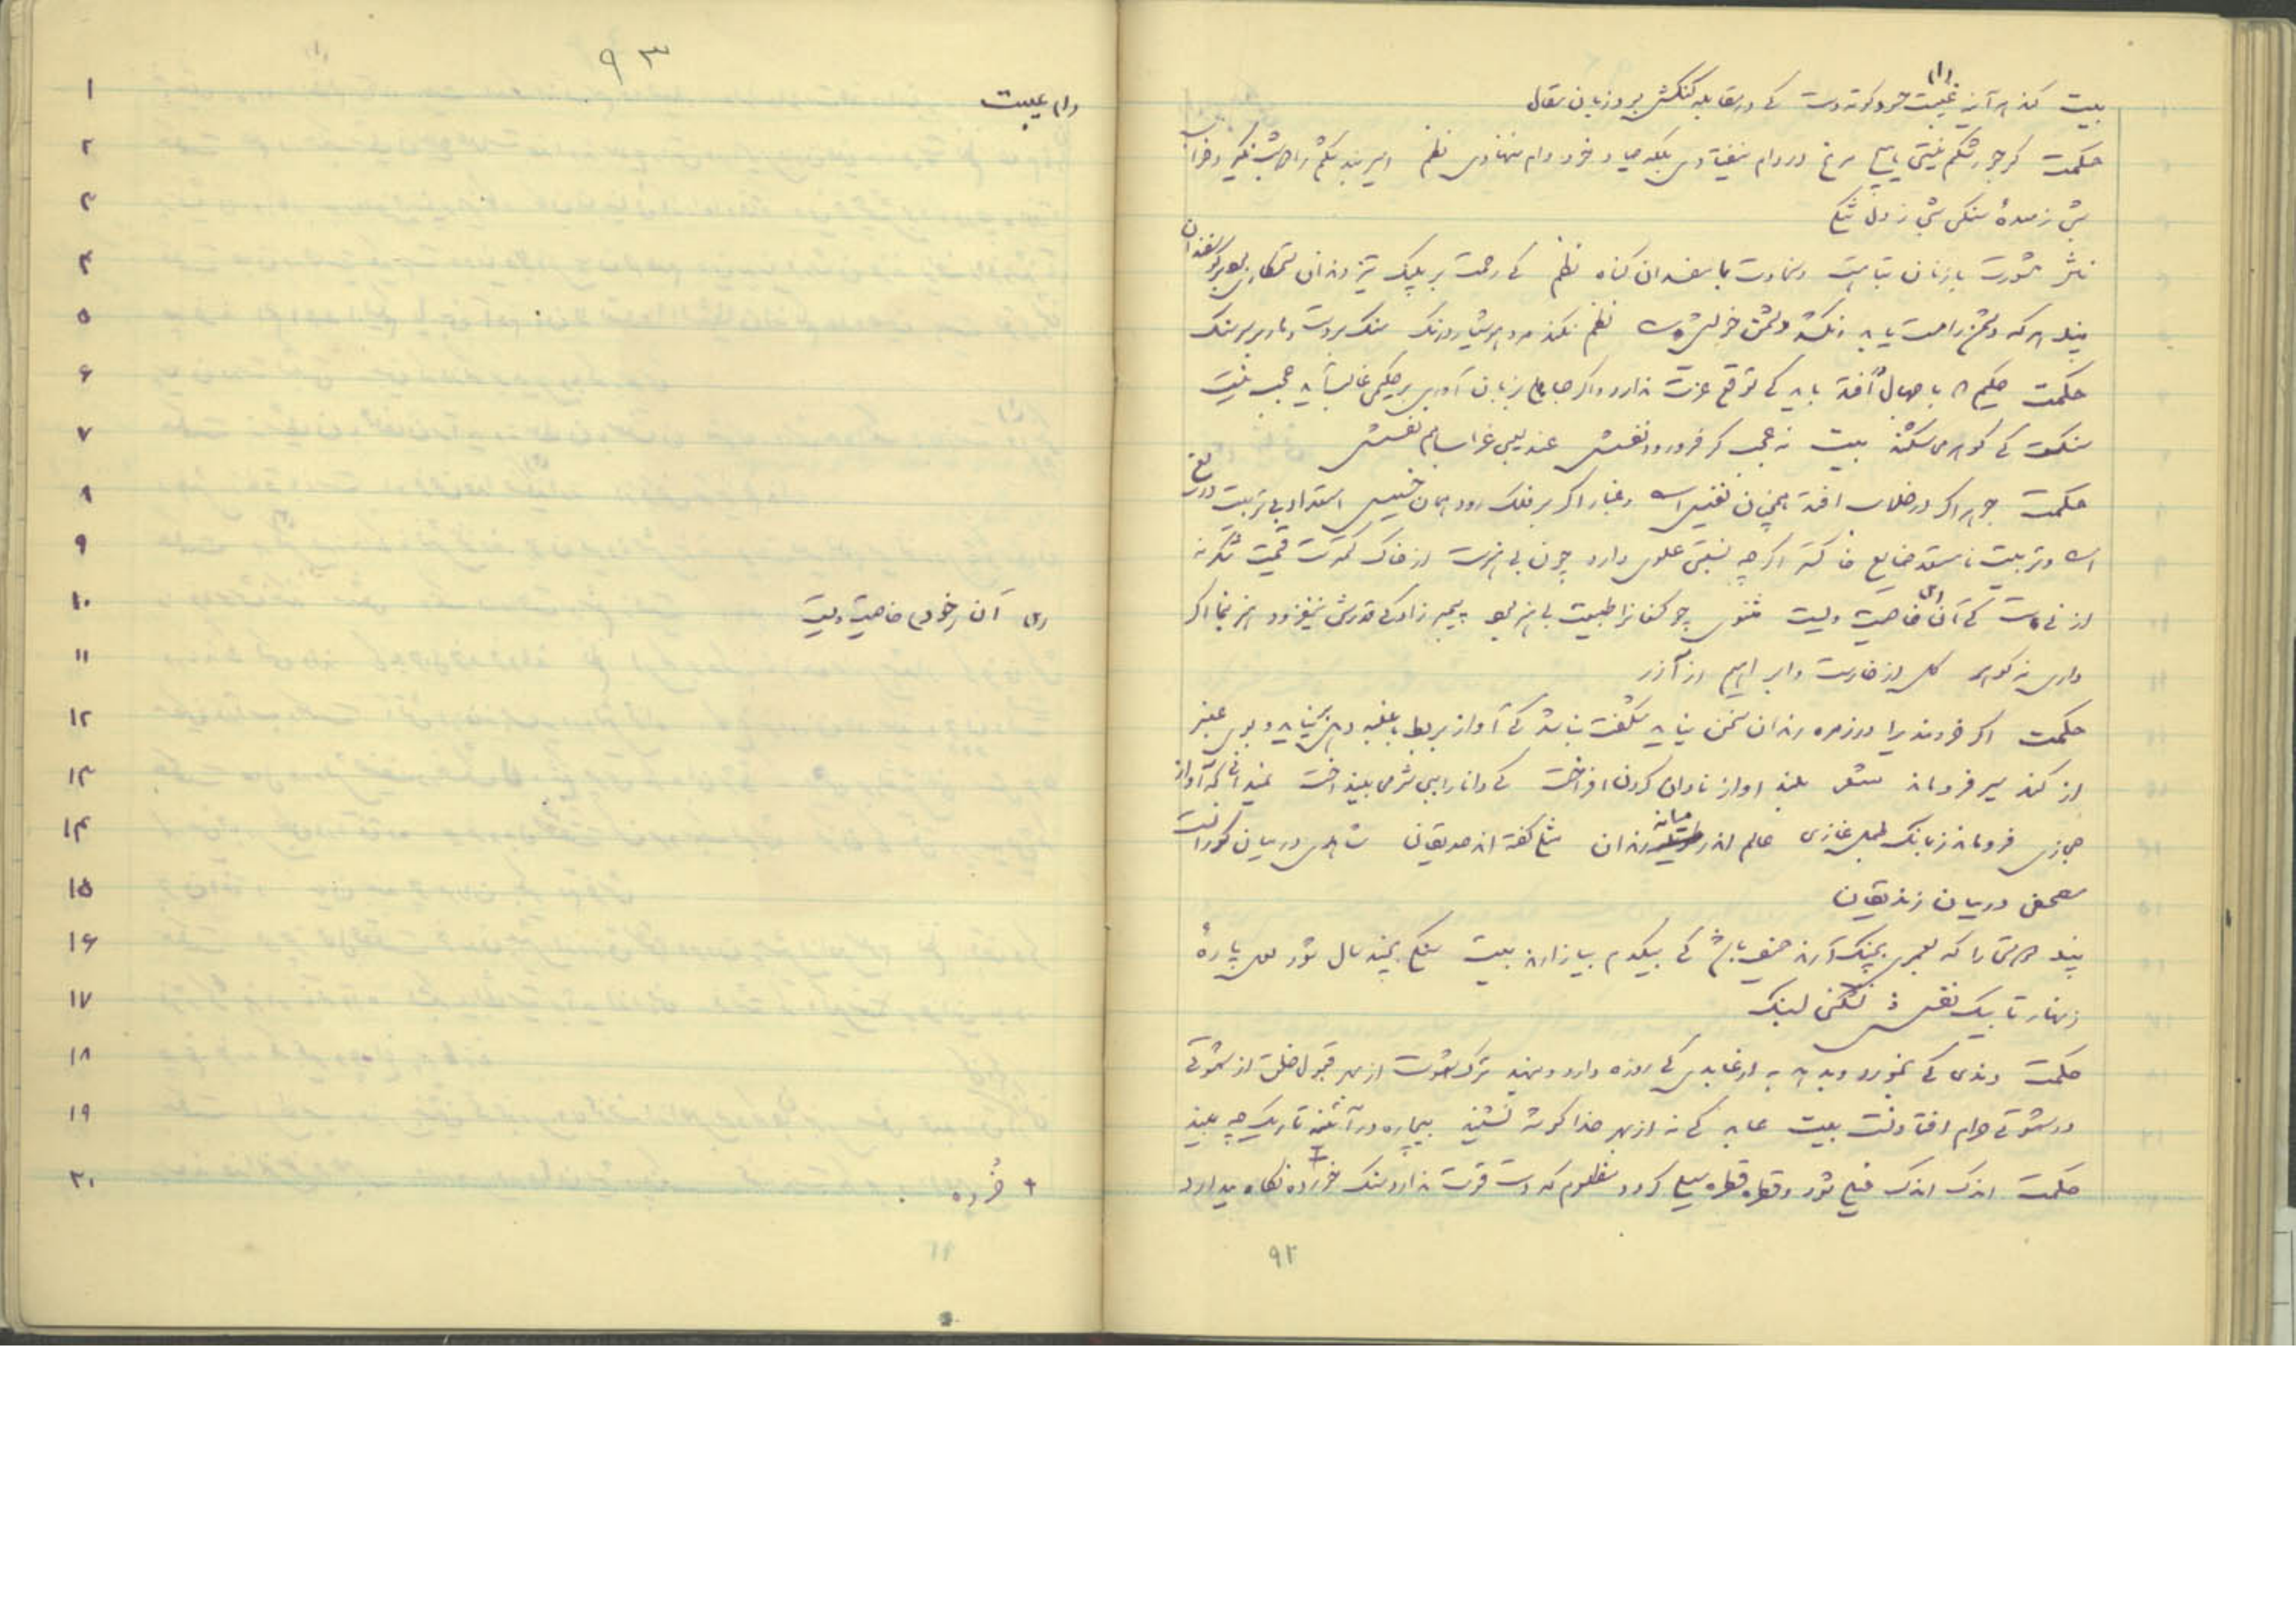 بیت کند هر آینه غیبت حسود کوته دست که در مقابله کنکش بود زبان مقال
حکمت کر جور شکم نیستی هیچ مرغ در دام نیفتادی بلکه صیاد خود دام ننهادی نظم اسیر بند شکم را دو شب نکیرد خواب
شبی ز معدهٔ سنکی شبی ز دل تنکی
نثر مشورت با زنان تباهست و سخاوت با مفسدان کناه نظم که رحمت بر پلنک تیز دندان ستمکاری بود بر کوسفندان
پند هر که دشمن را دست یابد و نکشد دشمن خویش است نظم نکند مرد هوشیار درنک سنک بر دست و مار بر سر سنک
حکمت حکیم که با جهال افتد باید که توقع عزت ندارد و اکر جاهلی بزبان آوری بر حکیمی غالب آید عجب نیست
سنکست که کوهر می شکند بیت نه عجب کر فرو رود نفسش عندلیبی غراب هم قفسش
حکمت جوهر اکر در خلاب افتد همچنان نفیس است و غبار اکر بر فلک رود همان خسیس استعداد بی تربیت دریغ
است و تربیت نامستعد ضایع خاکستر اکر چه نسبتی علوی دارد چون بی هنرست از خاک کمترست قیمت شکر نه
از نی است که آن خاصیت ویست مثنوی چو کنعانرا طبیعت بی هنر بود پیمبر زادکی قدرش نیفزود هنر بنما اکر
داری نه کوهر کل از خارست و ابراهیم از آزر
حکمت اکر خردمندیرا در زمره رندان سخن نیاید شکفت نباشد که آواز بربط با غلبه دهل برنیاید و بوی عنبر
از کند سیر فروماند شعر بلند آواز نادان کردن افراخت که دانا را ببی شرمی بینداخت نمیداند که آواز
حجازی فروماند ز بانک طبل غازی عالم اندر میانه رندان مثلی کفته اند صدیقان شاهدی در میان کورانست
مصحفی در میان زندیقان
پند دوستی را که بعمری بچنک آرند حیف باشد که بیکدم بیازارند بیت سنکی بچند سال شود لعل پارهٔ
زنهار تا بیک نفسش نشکنی بسنک
حکمت رندی که بخورد و بدهد به از عابدی که روزه دارد و بنهد ترک شهوت از بهر قبول خلق از شهوتی
در شهوتی حرام افتادنست بیت عابد که نه از بهر خدا کوشه نشیند بیچاره در آئینه تاریک چه بیند
حکمت اندک اندک خیلی شود و قطره قطره سیلی کردد مظلوم که دست قوت ندارد سنک خورده نکاه میدارد
۹۲
۹۳
۱ (۱) عیبت
۲
۳
۴
۵
۶
۷
۸
۹
۱۰ (۱) آن از خود خاصیت ویست
۱۱
۱۲
۱۳
۱۴
۱۵
۱۶
۱۷
۱۸
۱۹
۲۰ + خُرده